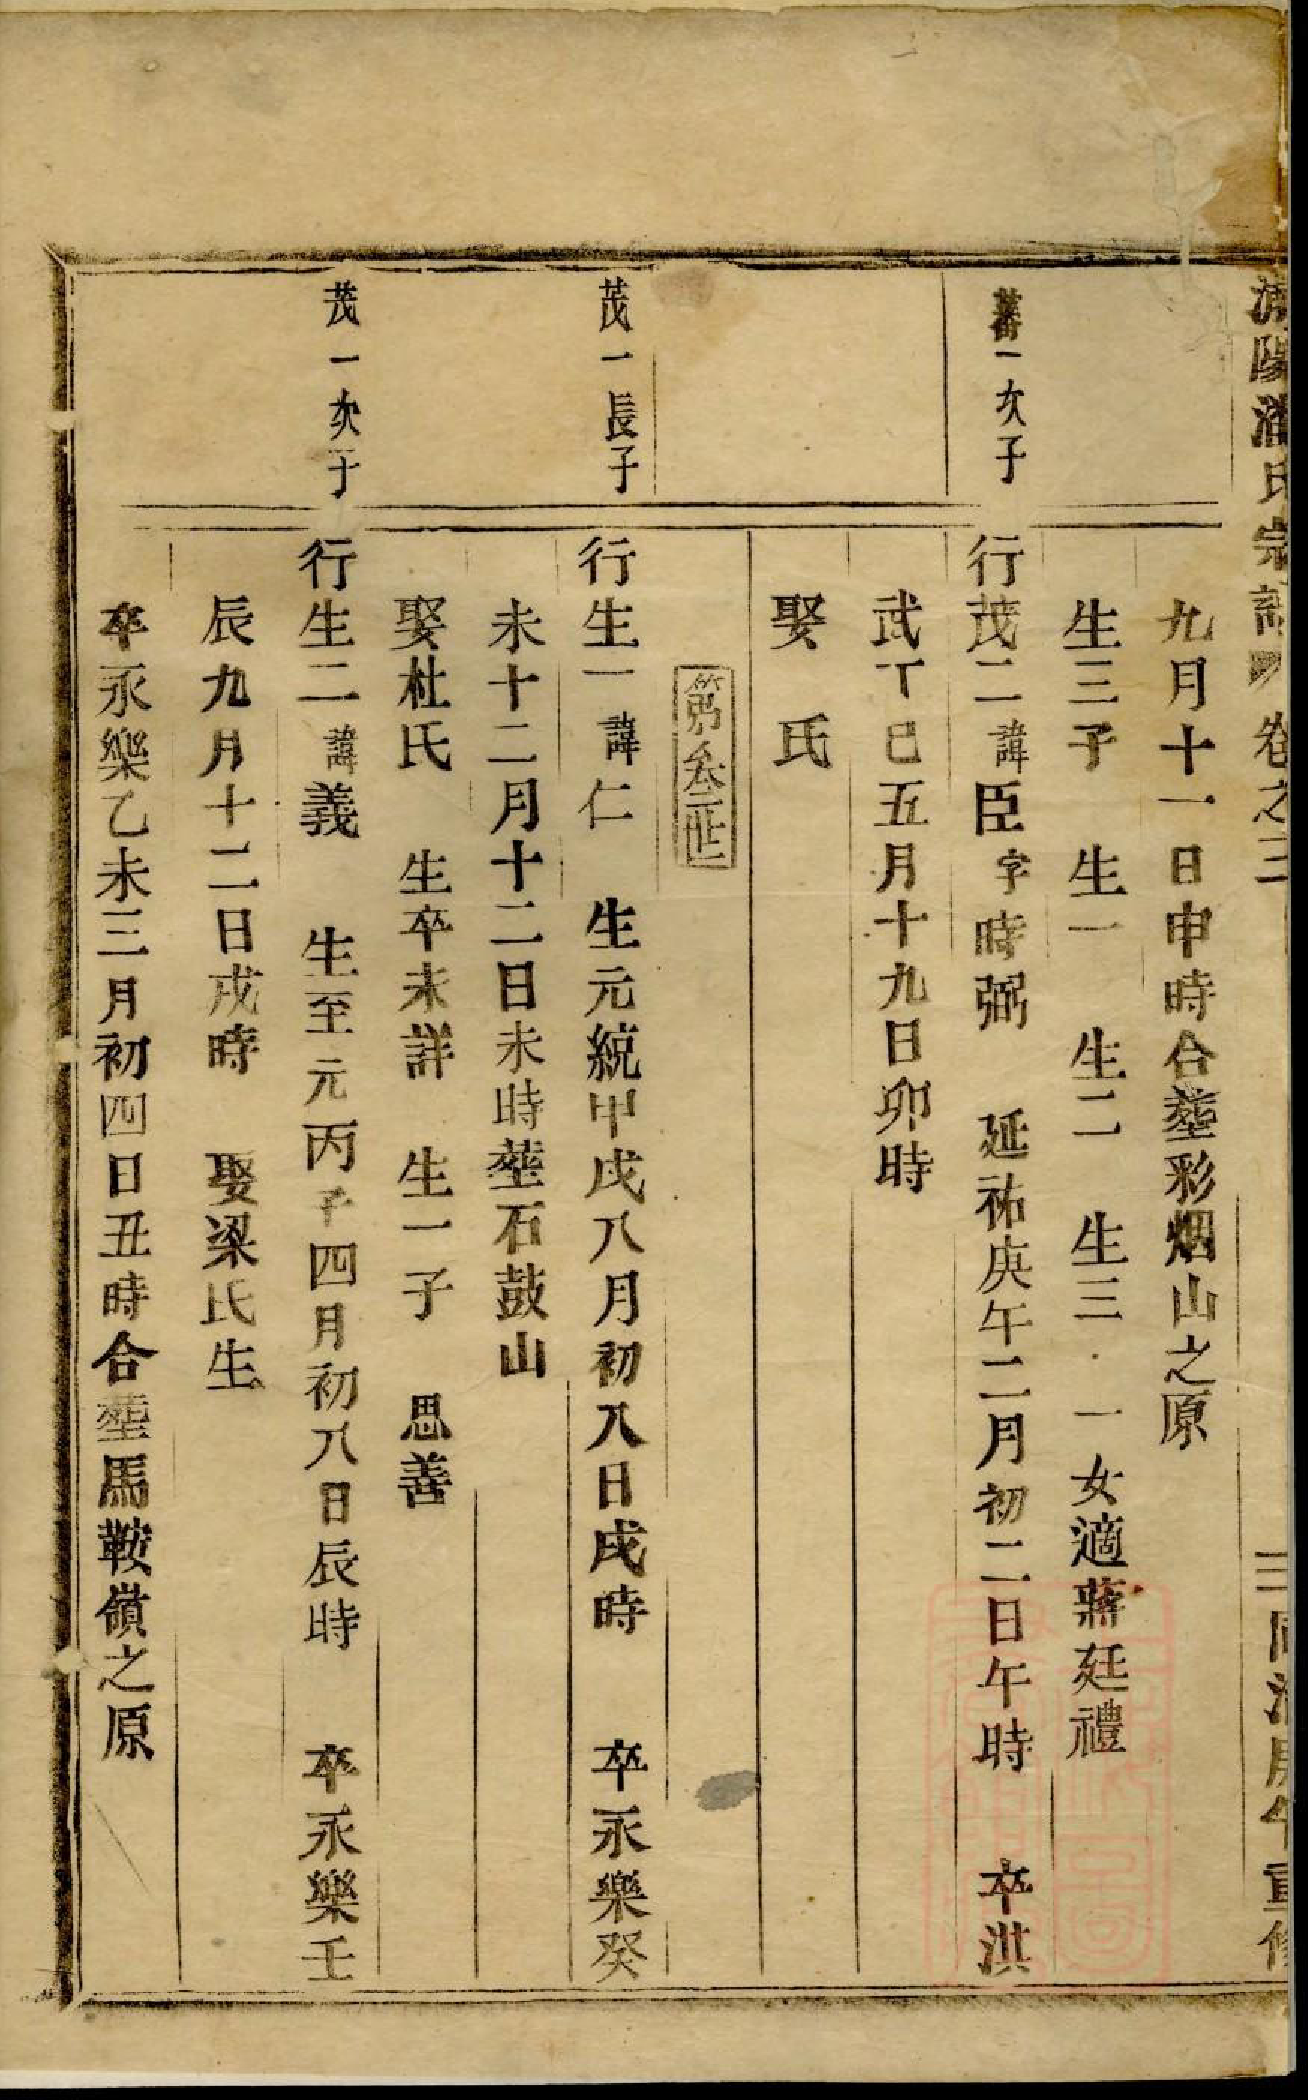 陽潘氏宗譜 卷之三 三 同治庚午重修
九月十一日申時合塟彩烟山之原
生三子 生一 生二 生三 一女適蔣廷禮
蕃一次子 行茂二諱臣字時弼 延祐庚午二月初二日午時 卒洪
武丁巳五月十九日卯時
娶 氏
第叁世
茂一長子 行生一諱仁 生元統甲戌八月初八日戌時 卒永樂癸
未十二月十二日未時塟石鼓山
娶杜氏 生卒未詳 生一子 思善
茂一次子 行生二諱義 生至元丙子四月初八日辰時 卒永樂壬
辰九月十二日戌時 娶梁氏生
卒永樂乙未三月初四日丑時合塟馬鞍嶺之原